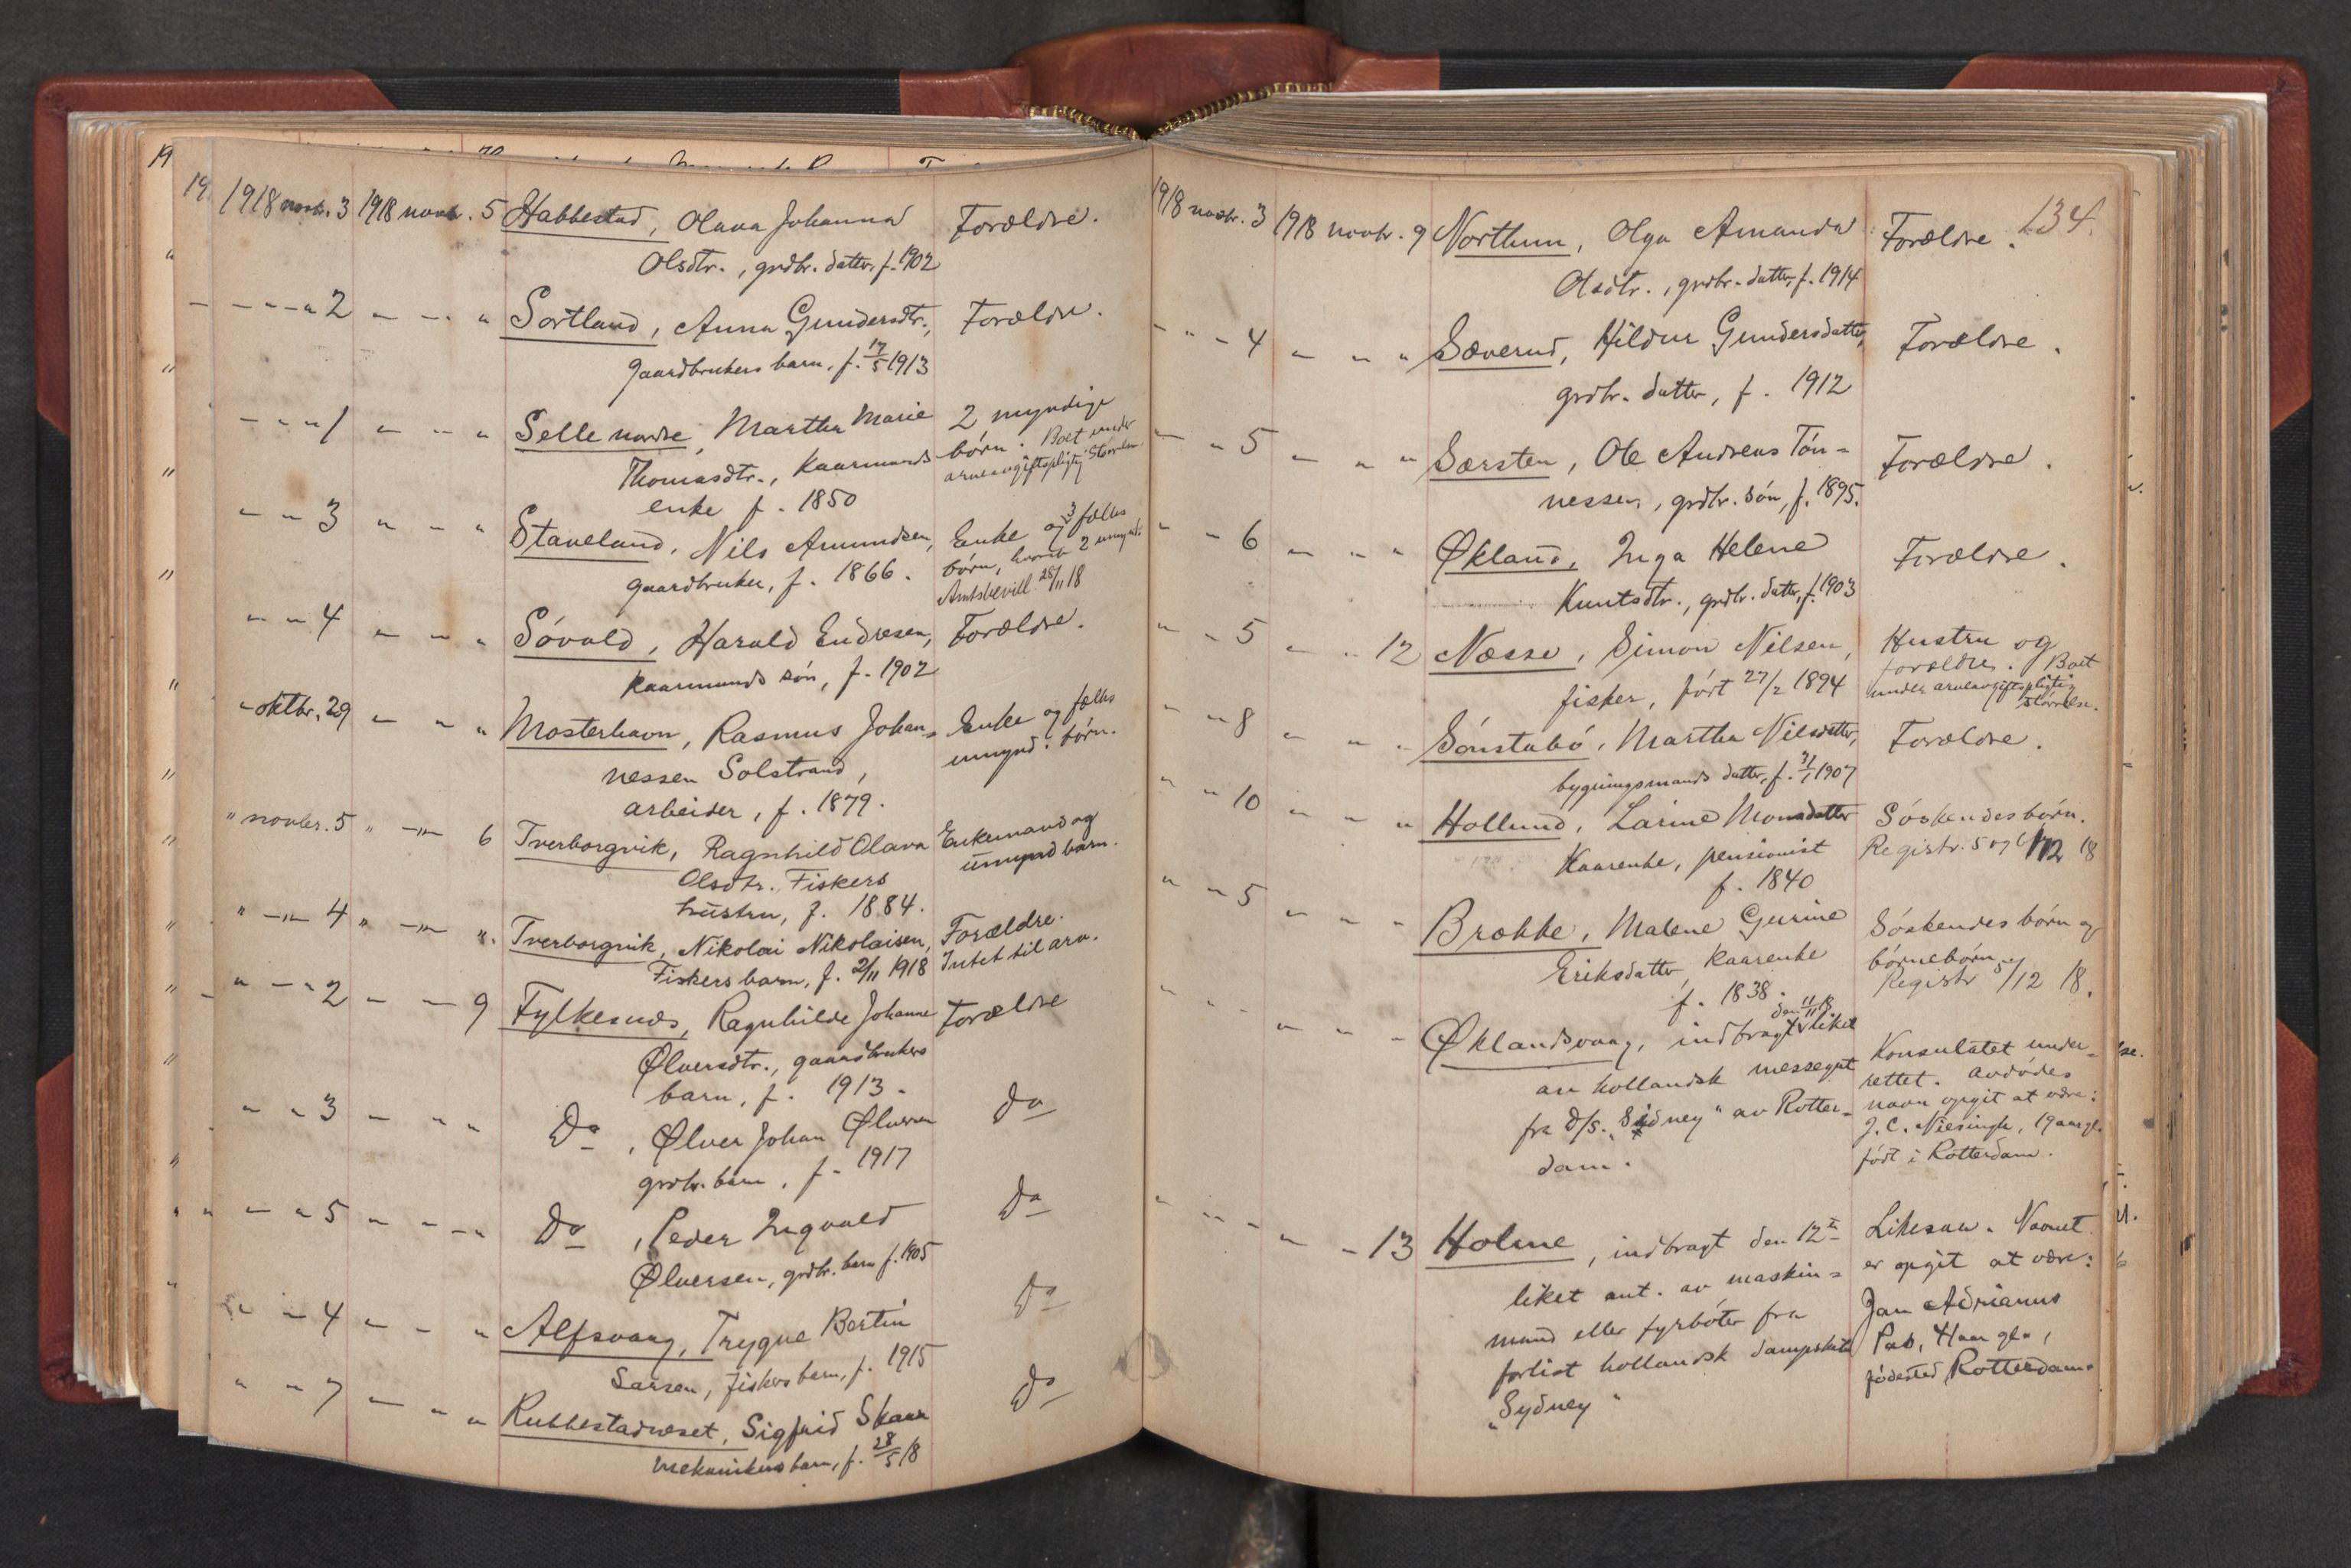 19
19. 1918 novbr. 3 1918 novbr. 5 Habbestad, Olava Johanna Forældre.
Olsdtr., grdbr. datter, f. 1902
" — — — " 2 — — " Sortland, Anna Gundersdtr., Forældre.
gaardbrukers barn, f. 17/5 1913
" — — " 1 — — " Selle nordre, Martha Marie 2 myndige
Thomasdtr., Kaarmands børn. Boet under
enke f. 1850 arveavgiftspligtig Størrelse.
" — " 3 " — " Staveland, Nils Amundsen, Enke og 3 fælles
gaardbruker, f. 1866. børn, hvorav 2 umynd.
Amtsbevill. 28/11 18
" — " 4 — — " Søvold, Harald Endresen, Forældre.
kaarmands søn, f. 1902
" - oktbr. 29 — — " Mosterhavn, Rasmus Johan= Enke og fælles
nessen Solstrand, umynd. børn.
arbeider, f. 1879.
" novbr. 5 " —"— 6 Tverborgvik, Ragnhild Olava Enkemand og
Olsdtr. Fiskers umynd barn.
hustru, f. 1884.
" —"— 4 " —"— ". Tverborgvik, Nikolai Nikolaisen, Forældre.
Fiskers barn, f. 2/11 1918 Intet til arv.
" - " — " 2 — — 9 Fylkesnæs, Ragnhilde Johanne Forældre
Ølversdtr., gaardbrukers
barn, f. 1913.
" " — " 3 — " " Do , Ølver Johan Ølversen Do
grdbr. barn, f. 1917
" " — " 5 " — — " Do , Peder Ingvald Do
Ølversen, grdbr. barn f. 1905
" " — " 4 — — " Alfsvaag, Trygve Bertin Do
Larsen, fiskers barn, f. 1915
" — " 7 — " " Rubbestadneset, Sigfrid Skaar Do
mekanikers barn, f. 28/5 18
134.
1918 novbr. 3 1918 novbr. 9 Northun, Olga Amanda Forældre.
Olsdtr., grdbr. datter, f. 1914
" " — 4 — " " Sæverud, Hildur Gundersdatter, Forældre.
grdbr. datter, f. 1912
— " 5 — " " Særsten, Ole Andreas Tøn= Forældre.
nessen, grdbr. søn, f. 1895.
" — " 6 — " " Økland, Inga Helene Forældre.
Knutsdtr., grdbr. datter, f. 1903
" — " 5 — " 12 Næsse, Simon Nilsen, Hustru og
fisker, født 27/2 1894 forældre. Boet
under arveavgiftspligtig
størrelse.
" — " 8 — " " Sønstabø, Martha Nilsdatter, Forældre.
bygningsmands datter, f. 1907
" — " 10 — " " Hollund, Larine Monsdatter Søskendesbørn.
Kaarenke, pensionist Registr. 5 og 12 18
f. 1840
" — " 5 — " " Brække, Malene Gurine Søskendes børn og
Eriksdatter, kaarenke børnebørn.
f. 1838. Registr 5/12 18.
" — " — " — " Øklandsvaag, indbragt den 11/11 18 liket Konsulatet under=
av hollandsk messegut rettet. Avdødes
fra D/S. "Sidney" av Rotter= navn opgit at være:
dam. J. C. Niesingh, 19 aar gl.
født i Rotterdam.
" — " — — " — 13 Holme, indbragt den 12te Likesaa. Navnet
liket ant. av maskin= er opgit at være:
mand eller fyrbøter fra Jan Adrianus
forlist hollandsk dampskib Pas, 41 aar gl.,
„Sydney" fødested Rotterdam.